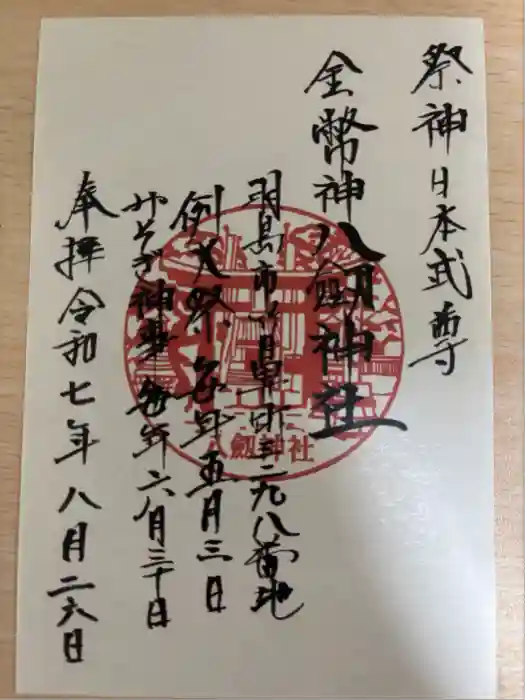 祭神日本武尊
金幣神八剱神社
羽島市竹鼻町三二九八番地
例大祭毎年五月三日
みそぎ神事毎年六月三十日
奉拝令和七年八月二六日
八剱神社